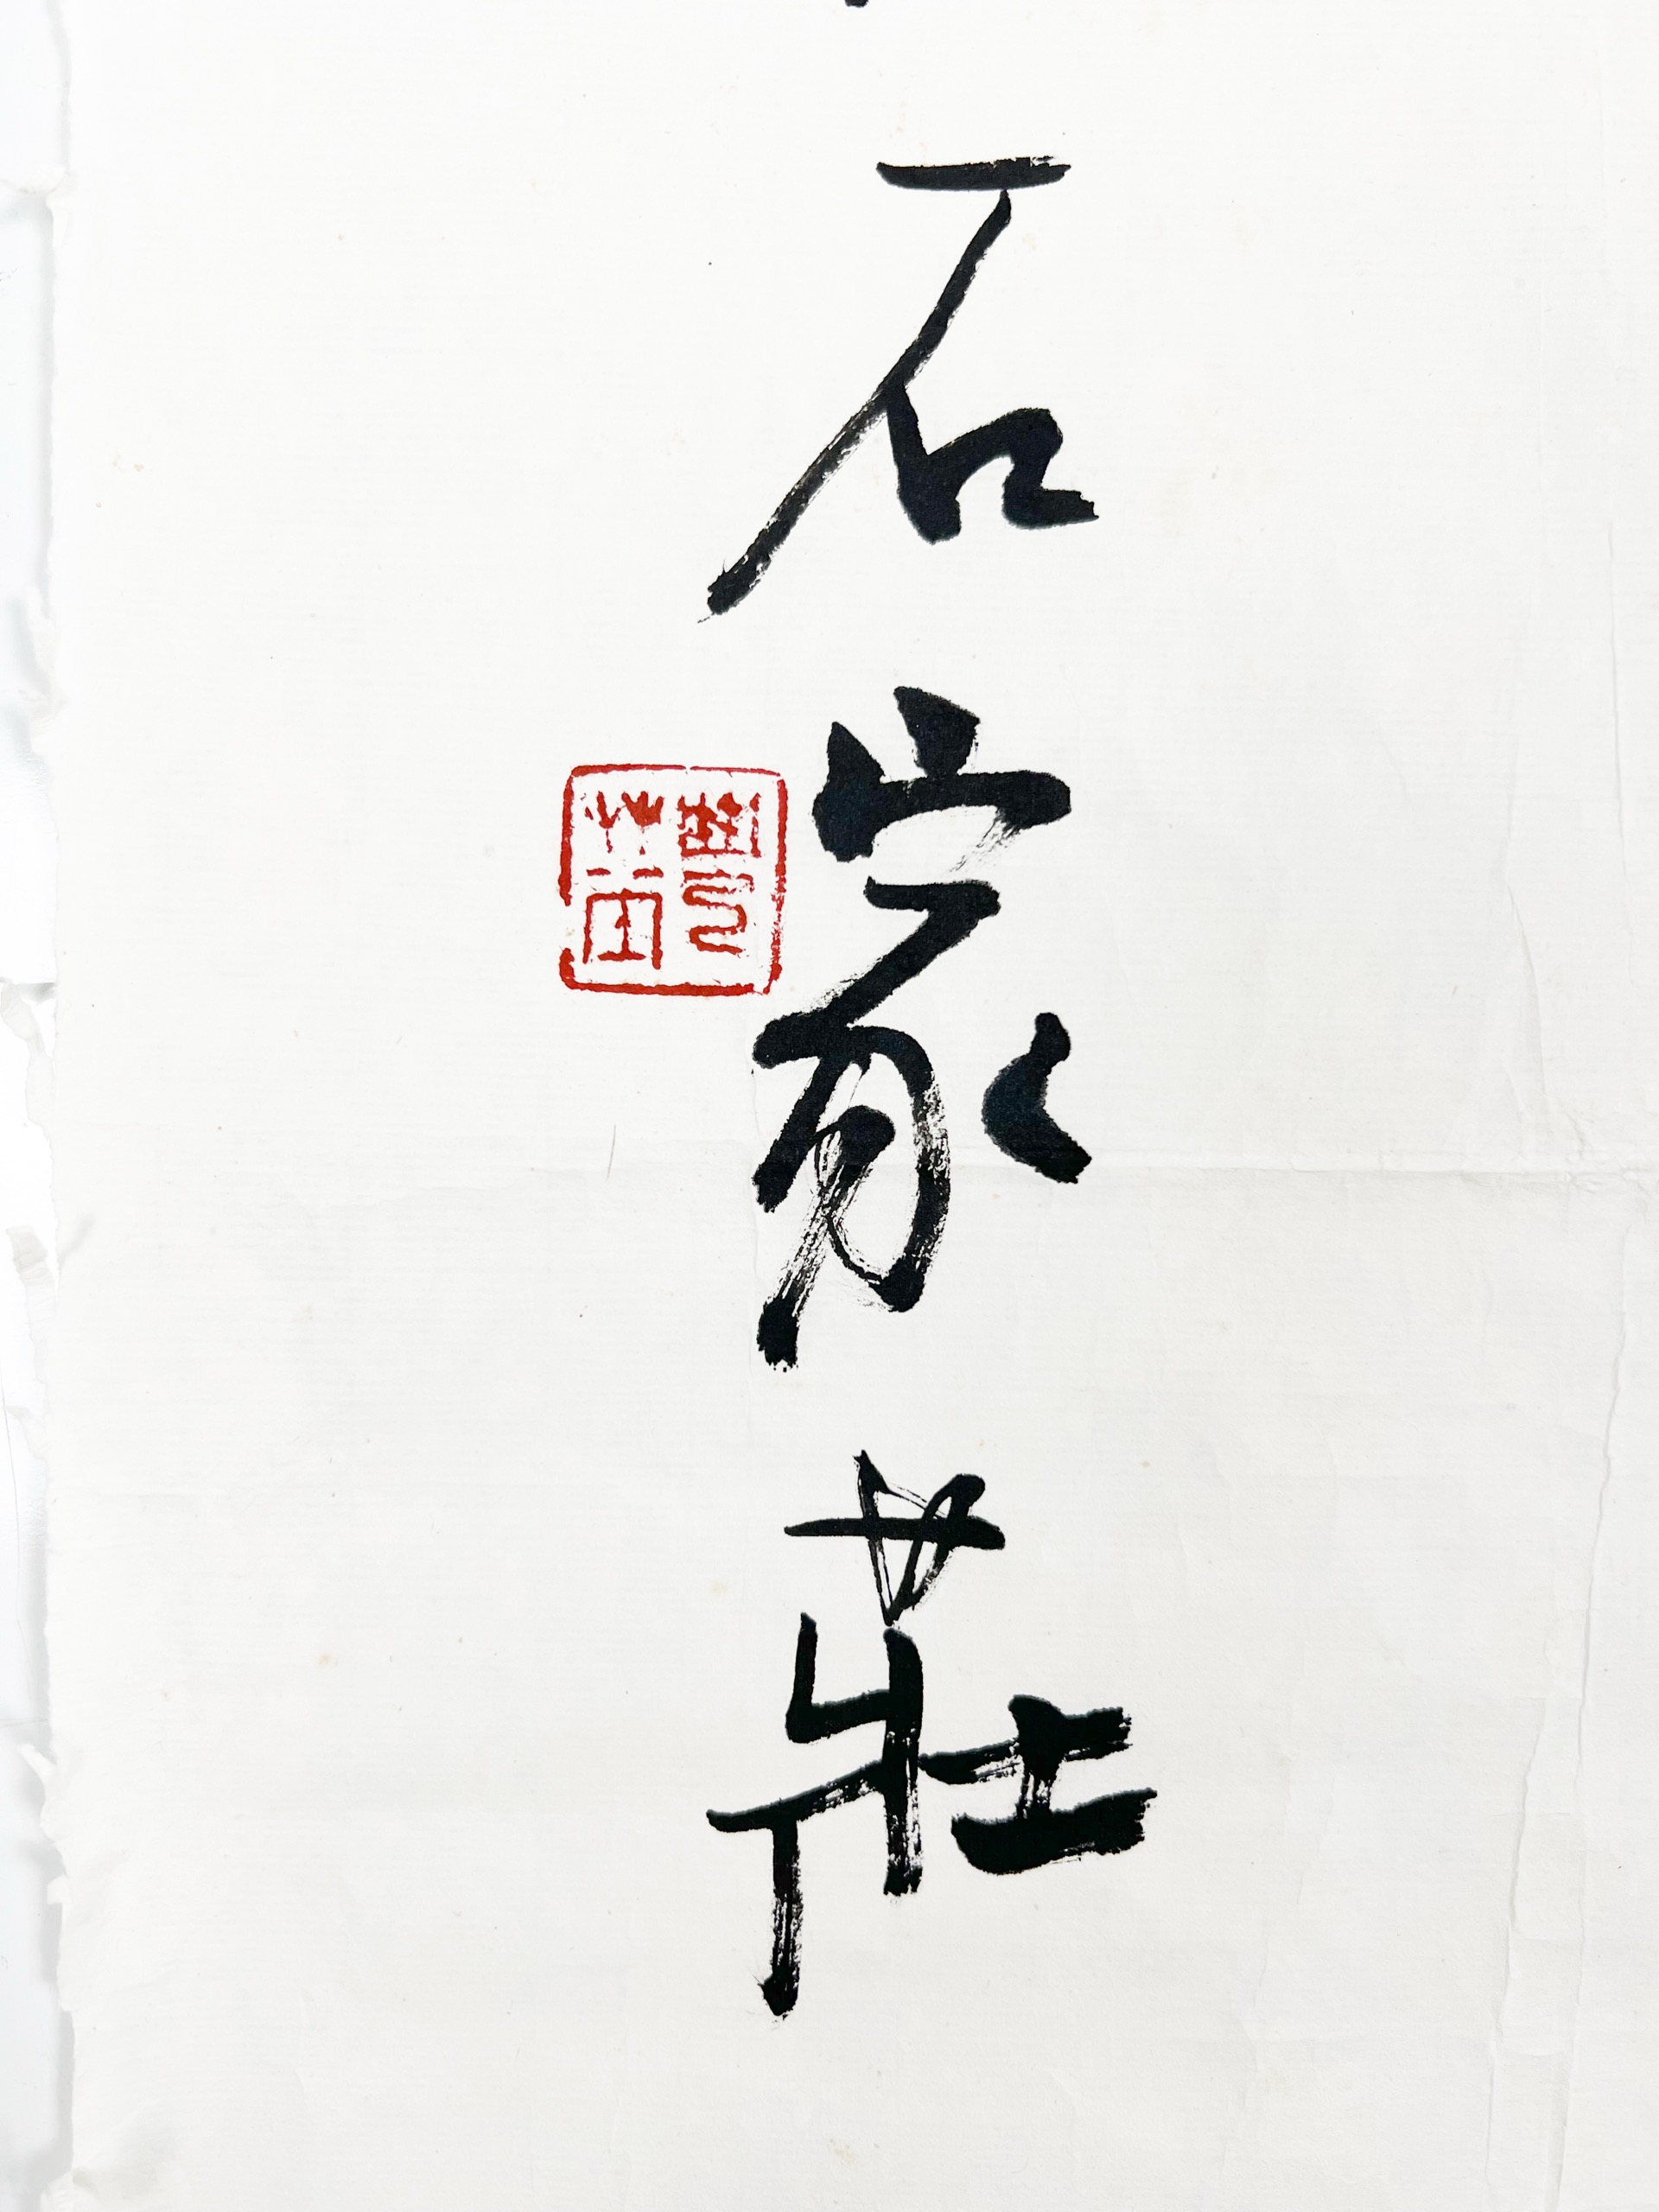 石家莊